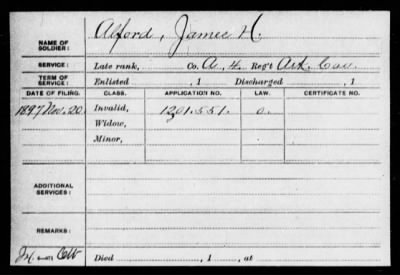 NAME OF SOLDIER: Alford, James H.
SERVICE: Late rank, Co. A, 4 Reg't Ark. Cav.
TERM OF SERVICE: Enlisted , 1 Discharged , 1
DATE OF FILING. CLASS. APPLICATION NO. LAW. CERTIFICATE NO.
1897 Nov. 20 Invalid, 1201.551.
Widow,
Minor,
ADDITIONAL SERVICES:
REMARKS:
Died , 1 , at